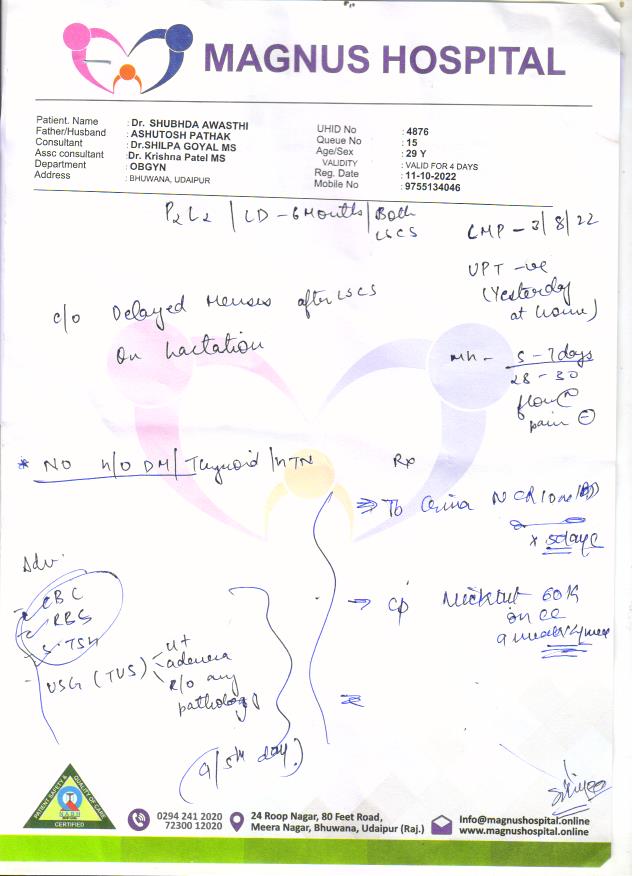 MAGNUS HOSPITAL
Patient. Name : Dr. SHUBHDA AWASTHI
Father/Husband : ASHUTOSH PATHAK
Consultant : Dr.SHILPA GOYAL MS
Assc consultant : Dr. Krishna Patel MS
Department : OBGYN
Address : BHUWANA, UDAIPUR
UHID No : 4876
Queue No : 15
Age/Sex : 29 Y
VALIDITY : VALID FOR 4 DAYS
Reg. Date : 11-10-2022
Mobile No : 9755134046
P2L2 / LD - 6 Months / Both LSCS
LMP - 3/8/22
UPT -ve
(Yesterday
at home)
c/o Delayed Menses after LSCS
On Lactation
MH - 5 - 7 days
28 - 30
flow N
pain
* NO H/O DM / Thyroid / HTN
Rx
Tb N CR
x 5 days
Cp 60K
Adv.
CBC
RBS
S. TSH
- USG (TVS) ut
adenexa
R/O any
pathology
5th day.)
PATIENT SAFETY & QUALITY OF CARE
NABH
CERTIFIED
0294 241 2020
72300 12020
24 Roop Nagar, 80 Feet Road,
Meera Nagar, Bhuwana, Udaipur (Raj.)
Info@magnushospital.online
www.magnushospital.online